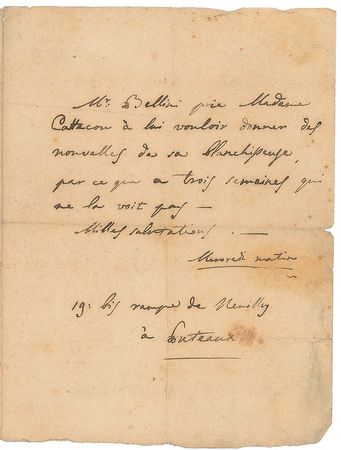 Mr. Bellini prie Madame
Cattacon à lui vouloir donner des
nouvelles de sa blanchisseuse,
par ce que a trois semaines qui
ne la voit pas —
Milles salutations. —
Mercredi matin
19: bis rampe de Neuilly
à Puteaux